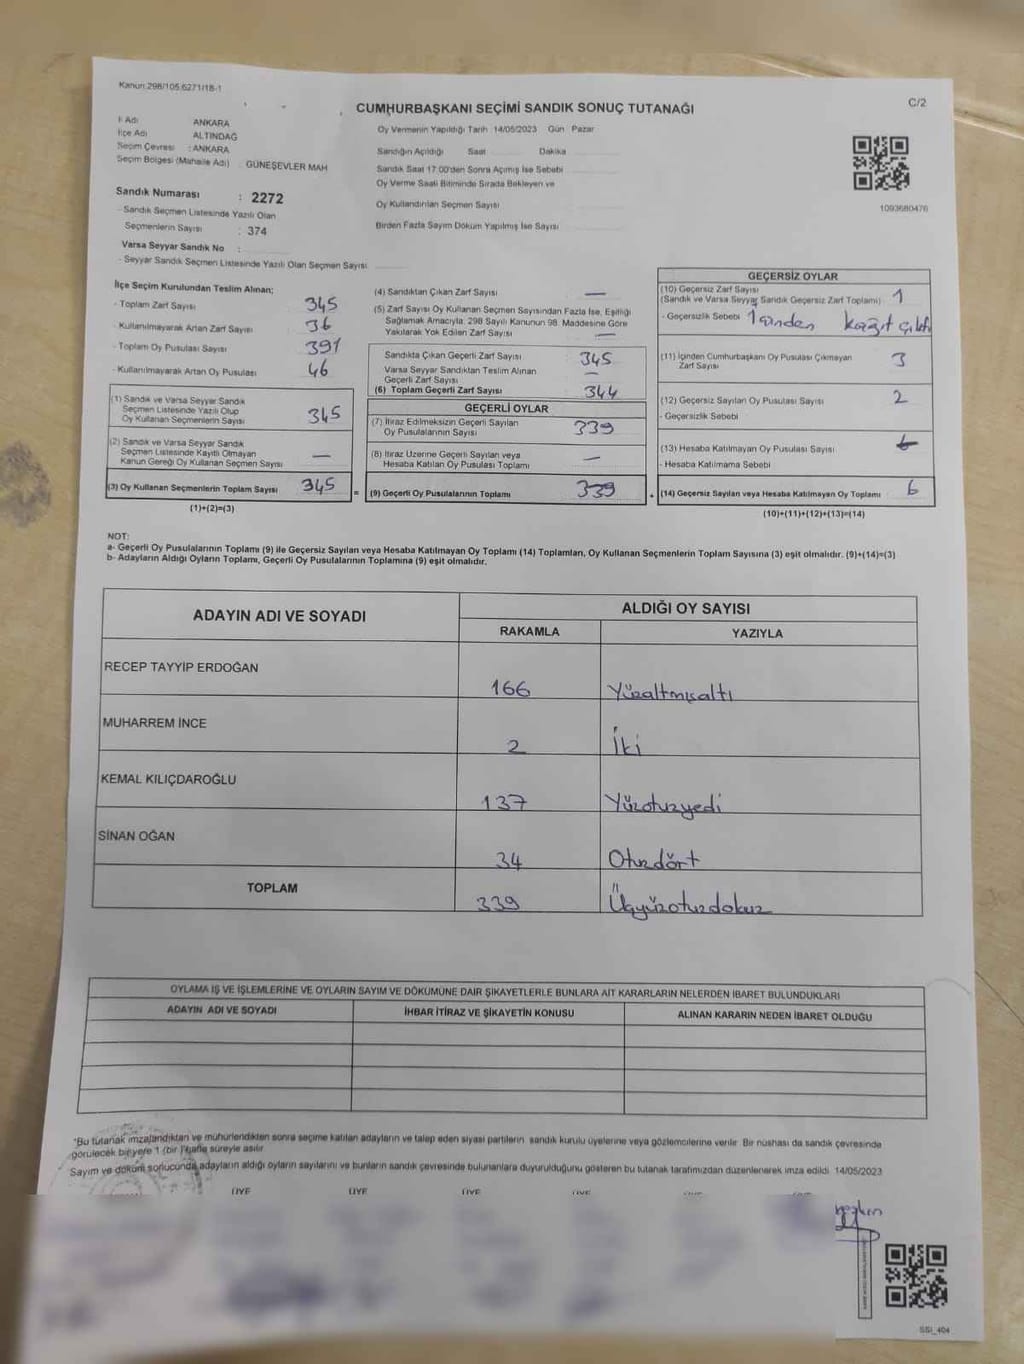 Kanun:298/105.6271/18-1
CUMHURBAŞKANI SEÇİMİ SANDIK SONUÇ TUTANAĞI
C/2
İl Adı ANKARA
İlçe Adı ALTINDAĞ
Seçim Çevresi : ANKARA
Seçim Bölgesi (Mahalle Adı) : GÜNEŞEVLER MAH
Oy Vermenin Yapıldığı Tarih 14/05/2023 Gün Pazar
Sandığın Açıldığı Saat Dakika
Sandık Saat 17:00'den Sonra Açılmış İse Sebebi
Oy Verme Saati Bitiminde Sırada Bekleyen ve
Oy Kullandırılan Seçmen Sayısı
Birden Fazla Sayım Döküm Yapılmış İse Sayısı
1093680476
Sandık Numarası : 2272
- Sandık Seçmen Listesinde Yazılı Olan
Seçmenlerin Sayısı : 374
Varsa Seyyar Sandık No :
- Seyyar Sandık Seçmen Listesinde Yazılı Olan Seçmen Sayısı
İlçe Seçim Kurulundan Teslim Alınan;
- Toplam Zarf Sayısı 345
- Kullanılmayarak Artan Zarf Sayısı 36
- Toplam Oy Pusulası Sayısı 391
- Kullanılmayarak Artan Oy Pusulası 46
(1) Sandık ve Varsa Seyyar Sandık
Seçmen Listesinde Yazılı Olup
Oy Kullanan Seçmenlerin Sayısı 345
(2) Sandık ve Varsa Seyyar Sandık
Seçmen Listesinde Kayıtlı Olmayan
Kanun Gereği Oy Kullanan Seçmen Sayısı —
(3) Oy Kullanan Seçmenlerin Toplam Sayısı 345
(1)+(2)=(3)
(4) Sandıktan Çıkan Zarf Sayısı —
(5) Zarf Sayısı Oy Kullanan Seçmen Sayısından Fazla İse, Eşitliği
Sağlamak Amacıyla, 298 Sayılı Kanunun 98. Maddesine Göre
Yakılarak Yok Edilen Zarf Sayısı —
Sandıkta Çıkan Geçerli Zarf Sayısı 345
Varsa Seyyar Sandıktan Teslim Alınan
Geçerli Zarf Sayısı —
(6) Toplam Geçerli Zarf Sayısı 344
GEÇERLİ OYLAR
(7) İtiraz Edilmeksizin Geçerli Sayılan
Oy Pusulalarının Sayısı 339
(8) İtiraz Üzerine Geçerli Sayılan veya
Hesaba Katılan Oy Pusulası Toplamı —
= (9) Geçerli Oy Pusulalarının Toplamı 339
GEÇERSİZ OYLAR
(10) Geçersiz Zarf Sayısı
(Sandık ve Varsa Seyyar Sandık Geçersiz Zarf Toplamı) 1
- Geçersizlik Sebebi 1 sinden kağıt çıktı
(11) İçinden Cumhurbaşkanı Oy Pusulası Çıkmayan
Zarf Sayısı 3
(12) Geçersiz Sayılan Oy Pusulası Sayısı 2
- Geçersizlik Sebebi
(13) Hesaba Katılmayan Oy Pusulası Sayısı
- Hesaba Katılmama Sebebi
+ (14) Geçersiz Sayılan veya Hesaba Katılmayan Oy Toplamı 6
(10)+(11)+(12)+(13)=(14)
NOT:
a- Geçerli Oy Pusulalarının Toplamı (9) ile Geçersiz Sayılan veya Hesaba Katılmayan Oy Toplamı (14) Toplamları, Oy Kullanan Seçmenlerin Toplam Sayısına (3) eşit olmalıdır. (9)+(14)=(3)
b- Adayların Aldığı Oyların Toplamı, Geçerli Oy Pusulalarının Toplamına (9) eşit olmalıdır.
ADAYIN ADI VE SOYADI
ALDIĞI OY SAYISI
RAKAMLA YAZIYLA
RECEP TAYYİP ERDOĞAN 166 Yüzaltmışaltı
MUHARREM İNCE 2 İki
KEMAL KILIÇDAROĞLU 137 Yüzotuzyedi
SİNAN OĞAN 34 Otuzdört
TOPLAM 339 Üçyüzotuzdokuz
OYLAMA İŞ VE İŞLEMLERİNE VE OYLARIN SAYIM VE DÖKÜMÜNE DAİR ŞİKAYETLERLE BUNLARA AİT KARARLARIN NELERDEN İBARET BULUNDUKLARI
ADAYIN ADI VE SOYADI İHBAR İTİRAZ VE ŞİKAYETİN KONUSU ALINAN KARARIN NEDEN İBARET OLDUĞU
*Bu tutanak imzalandıktan ve mühürlendikten sonra seçime katılan adayların ve talep eden siyasi partilerin sandık kurulu üyelerine veya gözlemcilerine verilir. Bir nüshası da sandık çevresinde
görülecek bir yere 1 (bir) hafta süreyle asılır
Sayım ve döküm sonucunda adayların aldığı oyların sayılarını ve bunların sandık çevresinde bulunanlara duyurulduğunu gösteren bu tutanak tarafımızdan düzenlenerek imza edildi 14/05/2023
ÜYE ÜYE ÜYE ÜYE
SSİ_404